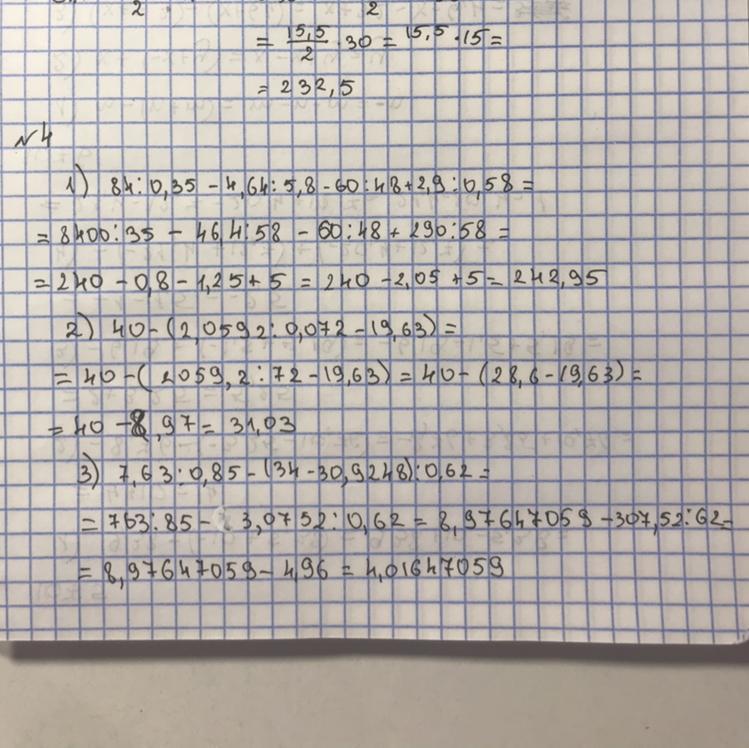 2 2
= 15,5/2 · 30 = 15,5 · 15 =
= 232,5
N4
1) 84:0,35 - 4,64:5,8 - 60:48 + 2,9:0,58 =
= 8400:35 - 46,4:58 - 60:48 + 290:58 =
= 240 - 0,8 - 1,25 + 5 = 240 - 2,05 + 5 = 242,95
2) 40 - (2,0592:0,072 - 19,63) =
= 40 - (2059,2:72 - 19,63) = 40 - (28,6 - 19,63) =
= 40 - 8,97 = 31,03
3) 7,63:0,85 - (34 - 30,9248):0,62 =
= 763:85 - 3,0752:0,62 = 8,97647059 - 307,52:62 =
= 8,97647059 - 4,96 = 4,01647059